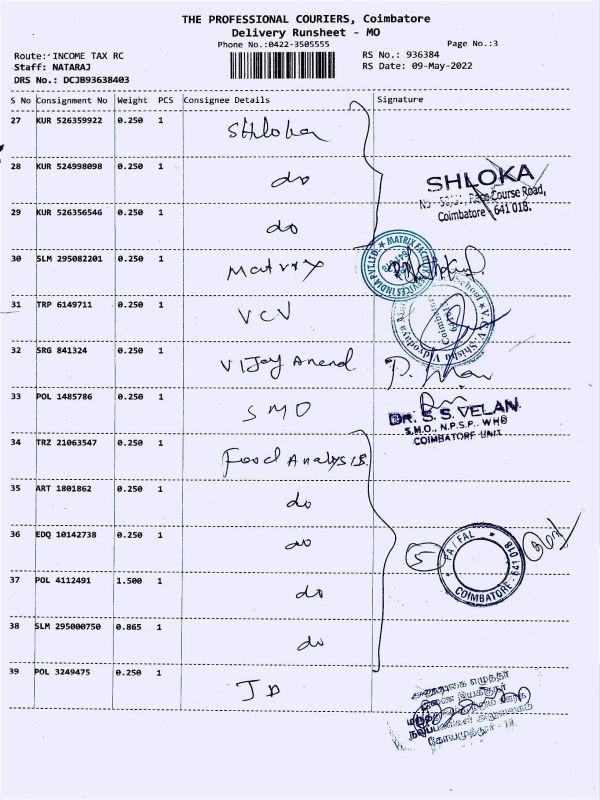 THE PROFESSIONAL COURIERS, Coimbatore
Delivery Runsheet - MO
Phone No.:0422-3505555
Page No.:3
Route: INCOME TAX RC
RS No.: 936384
Staff: NATARAJ
RS Date: 09-May-2022
DRS No.: DCJB93638403
S No Consignment No Weight PCS Consignee Details Signature
27 KUR 526359922 0.250 1 Shloka
28 KUR 524998098 0.250 1 do
SHLOKA
Race Course Road,
Coimbatore 641 018.
29 KUR 526356546 0.250 1 do
30 SLM 295082201 0.250 1 Matrix
MATRIX FACILITY SERVICES INDIA PVT.LTD.
31 TRP 6149711 0.250 1 VCV
V.C.V. Shishu Vidyodaya School
Coimbatore
32 SRG 841324 0.250 1 Vijay Anend
33 POL 1485786 0.250 1 SMO
Dr. S. S. VELAN
S.M.O., N.P.S.P., WHO
COIMBATORE UNIT
34 TRZ 21063547 0.250 1 Food Analysis
35 ART 1801862 0.250 1 do
36 EDQ 10142738 0.250 1 do
5
COIMBATORE - 641 018
37 POL 4112491 1.500 1 do
38 SLM 295000750 0.865 1 do
39 POL 3249475 0.250 1 JD
கோயமுத்தூர் - 18